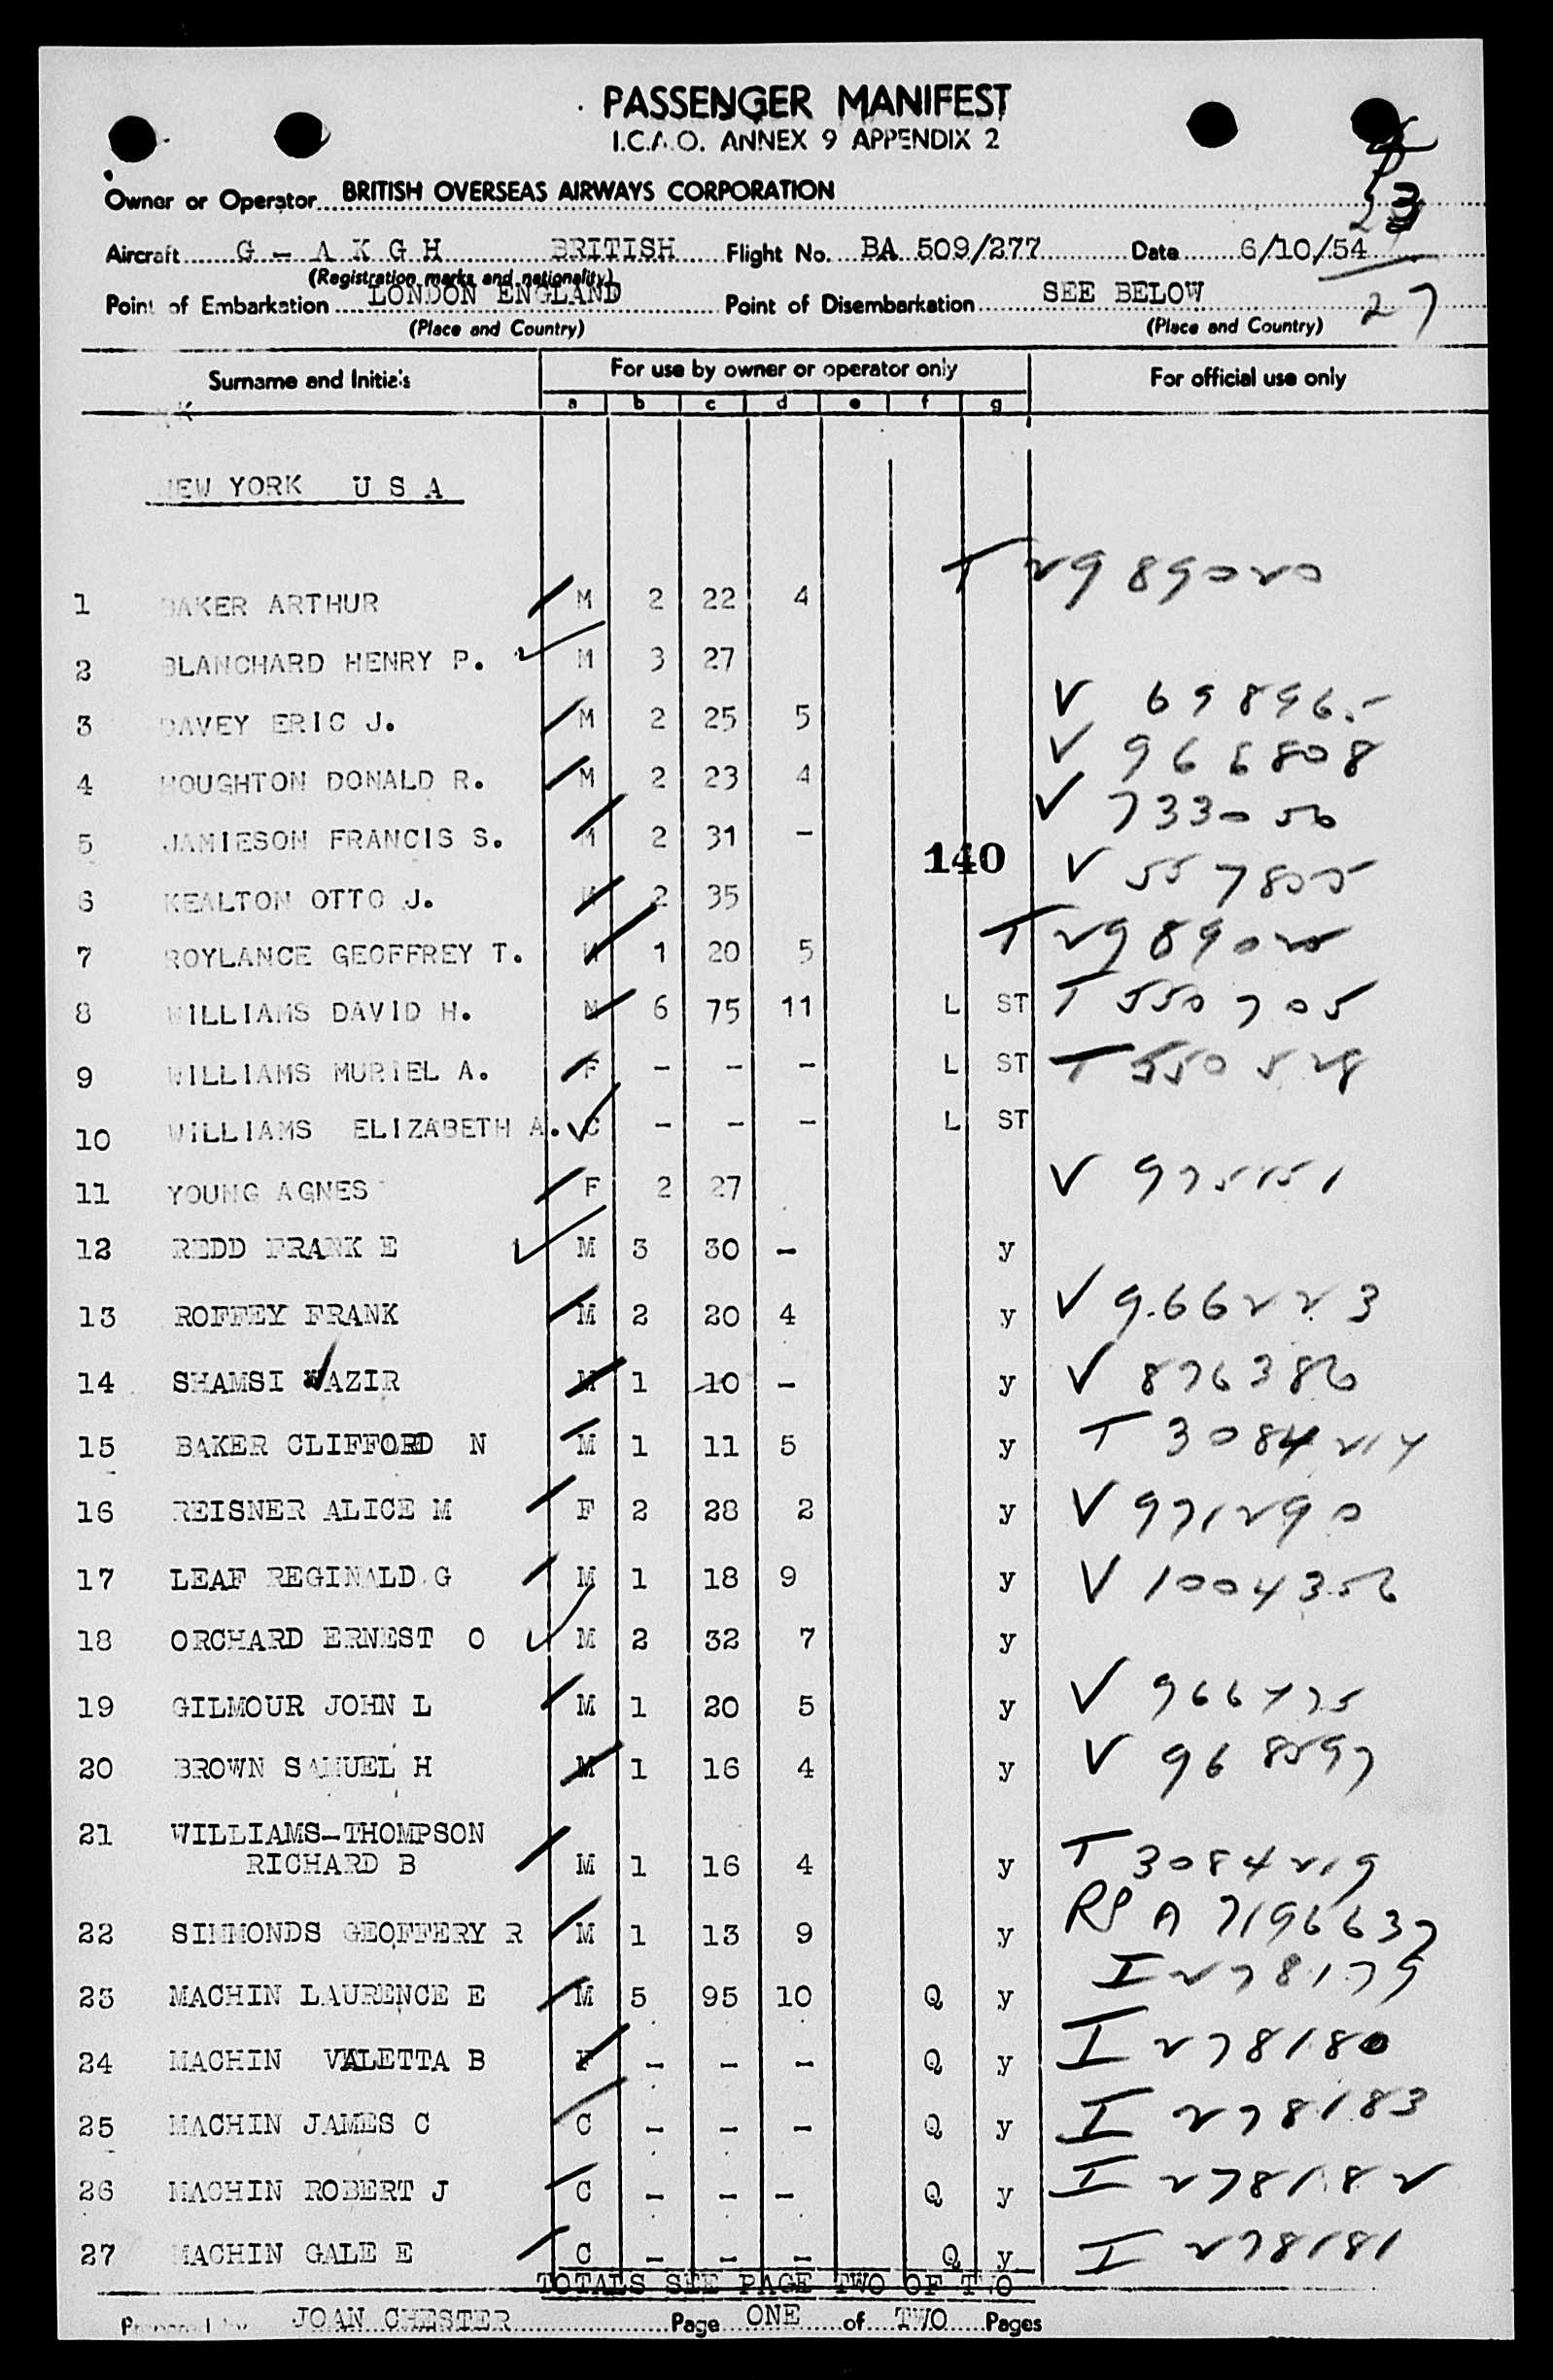 PASSENGER MANIFEST
I.C.A.O. ANNEX 9 APPENDIX 2
Owner or Operator BRITISH OVERSEAS AIRWAYS CORPORATION
3
Aircraft G - A K G H BRITISH Flight No. BA 509/277 Date 6/10/54
(Registration marks and nationality)
Point of Embarkation LONDON ENGLAND Point of Disembarkation SEE BELOW
(Place and Country) (Place and Country) 27
Surname and Initials For use by owner or operator only For official use only
a b c d e f g
NEW YORK U S A
T 2989020
1 BAKER ARTHUR M 2 22 4
2 BLANCHARD HENRY P. M 3 27
3 DAVEY ERIC J. M 2 25 5 V
4 HOUGHTON DONALD R. M 2 23 4 V 966808
5 JAMIESON FRANCIS S. M 2 31 - V
140
6 KEALTON OTTO J. M 2 35 V
7 ROYLANCE GEOFFREY T. M 1 20 5 T
8 WILLIAMS DAVID H. M 6 75 11 L ST T 550705
9 WILLIAMS MURIEL A. F - - - L ST T 550528
10 WILLIAMS ELIZABETH A. C - - - L ST
11 YOUNG AGNES F 2 27 V 975151
12 REDD FRANK E M 3 30 - y
13 ROFFEY FRANK M 2 20 4 y V 966223
14 SHAMSI WAZIR M 1 10 - y V 876386
15 BAKER CLIFFORD N M 1 11 5 y T 3084214
16 REISNER ALICE M F 2 28 2 y V 971290
17 LEAF REGINALD G M 1 18 9 y V 1004356
18 ORCHARD ERNEST O M 2 32 7 y
19 GILMOUR JOHN L M 1 20 5 y V
20 BROWN SAMUEL H M 1 16 4 y V 968597
21 WILLIAMS-THOMPSON
RICHARD B M 1 16 4 y T 3084219
22 SIMMONDS GEOFFERY R M 1 13 9 y RP A 7196637
23 MACHIN LAURENCE E M 5 95 10 Q y I 278179
24 MACHIN VALETTA B F - - - Q y I 278180
25 MACHIN JAMES C C - - - Q y I 278183
26 MACHIN ROBERT J C - - - Q y I 278182
27 MACHIN GALE E C - - - Q y I 278181
TOTALS SEE PAGE TWO OF TWO
Prepared by JOAN CHESTER Page ONE of TWO Pages